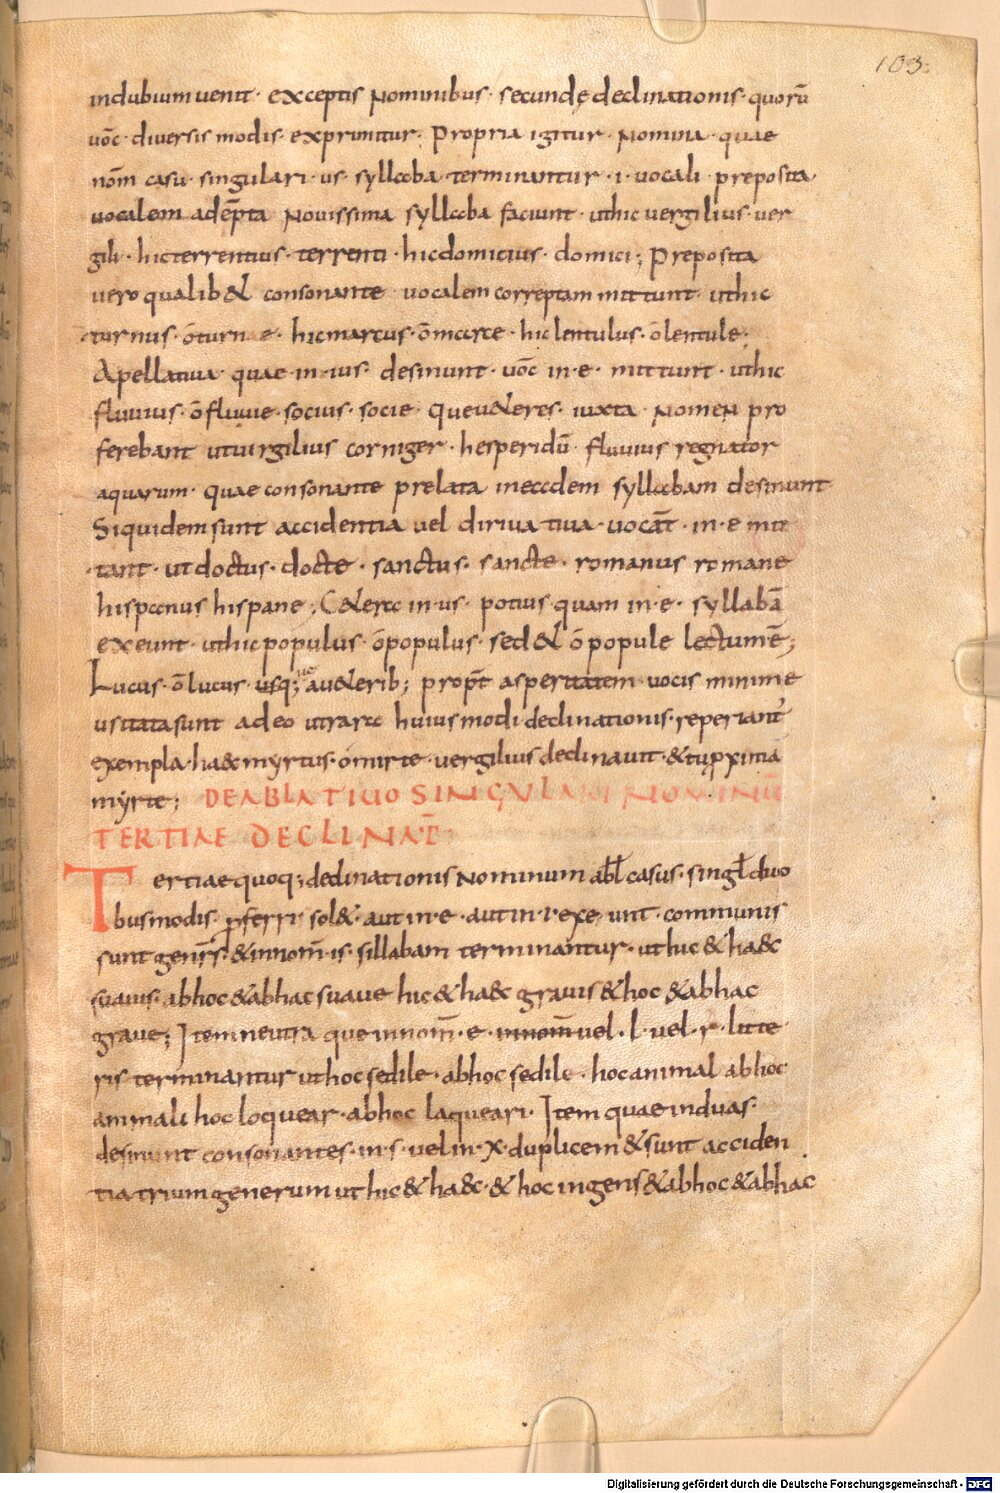 103.
indubium uenit · exceptis Nominibus · secundę declinationis · quorū
uōc · diuersis modis · exprimitur · Propria igitur · Nomina · quae
nōm casu · singulari · us · syllaba · terminantur · i · uocali · preposita ·
uocalem adēpta Nouissima syllaba faciunt · ut hic uergilius · uer
gili · hic terrentius · terrenti · hic domicius · domici ; Preposita
uero qualib& consonante uocalem correptam mittunt · ut hic
turnus · ō turn e · hic marcus · ō marce · hic lentulus · ō lentule ;
Apellatiua · quae · in · ius · desinunt · uōc · in · e · mittunt · ut hic
fluuius · ō fluuie · socius · socie · que u&eres · iuxta · Nomen pro
ferebant ut uirgilius corniger · hesperidū · fluuius regnator
aquarum · quae consonante prelata in eadem syllabam desinunt
Siquidem sunt accidentia uel diriua tiua · uocāt · in · e mit
tant · ut doctus · docte · sanctus · sancte · romanus romane
hispanus hispane ; C&era in · us · potius quam in · e · syllabā
exeunt · ut hic populus · ō populus · sed & ō popule lectum ē ;
Lucus · ō lucus · usq; au&erib; prop̄t asperitatem uocis minime
usitata sunt adeo ut rara huius modi declinationis · reperiant̄
exempla · haec myrtus · ō mirte · uergilius declinauit · & tu pxima
myrte ; DE ABLATIUO SINGULARI NOMINŪ
TERTIAE DECLINAT̄
Tertiae quoq; declinationis Nominum abl̄ casus · singl̄ duo
bus modis · proferri sol& · aut in · e · aut in · i · exe unt · communis
sunt generis · & in nom̄ · is · sillabam terminantur · ut hic & haec
suauis · ab hoc & ab hac suaue hic & haec grauis & hoc & ab hac
graue ; Item neutra que in nom̄ · e · in nom̄ uel · l · uel · r · litte
ris terminantur ut hoc sedile · ab hoc sedile · hoc animal ab hoc
animali hoc loquear · ab hoc laqueari · Item quae in duas ·
desinunt consonantes · in · s · uel in · x · duplicem & sunt acciden
tia trium generum ut hic & haec · & hoc ingens & ab hoc & ab hac
Digitalisierung gefördert durch die Deutsche Forschungsgemeinschaft · DFG